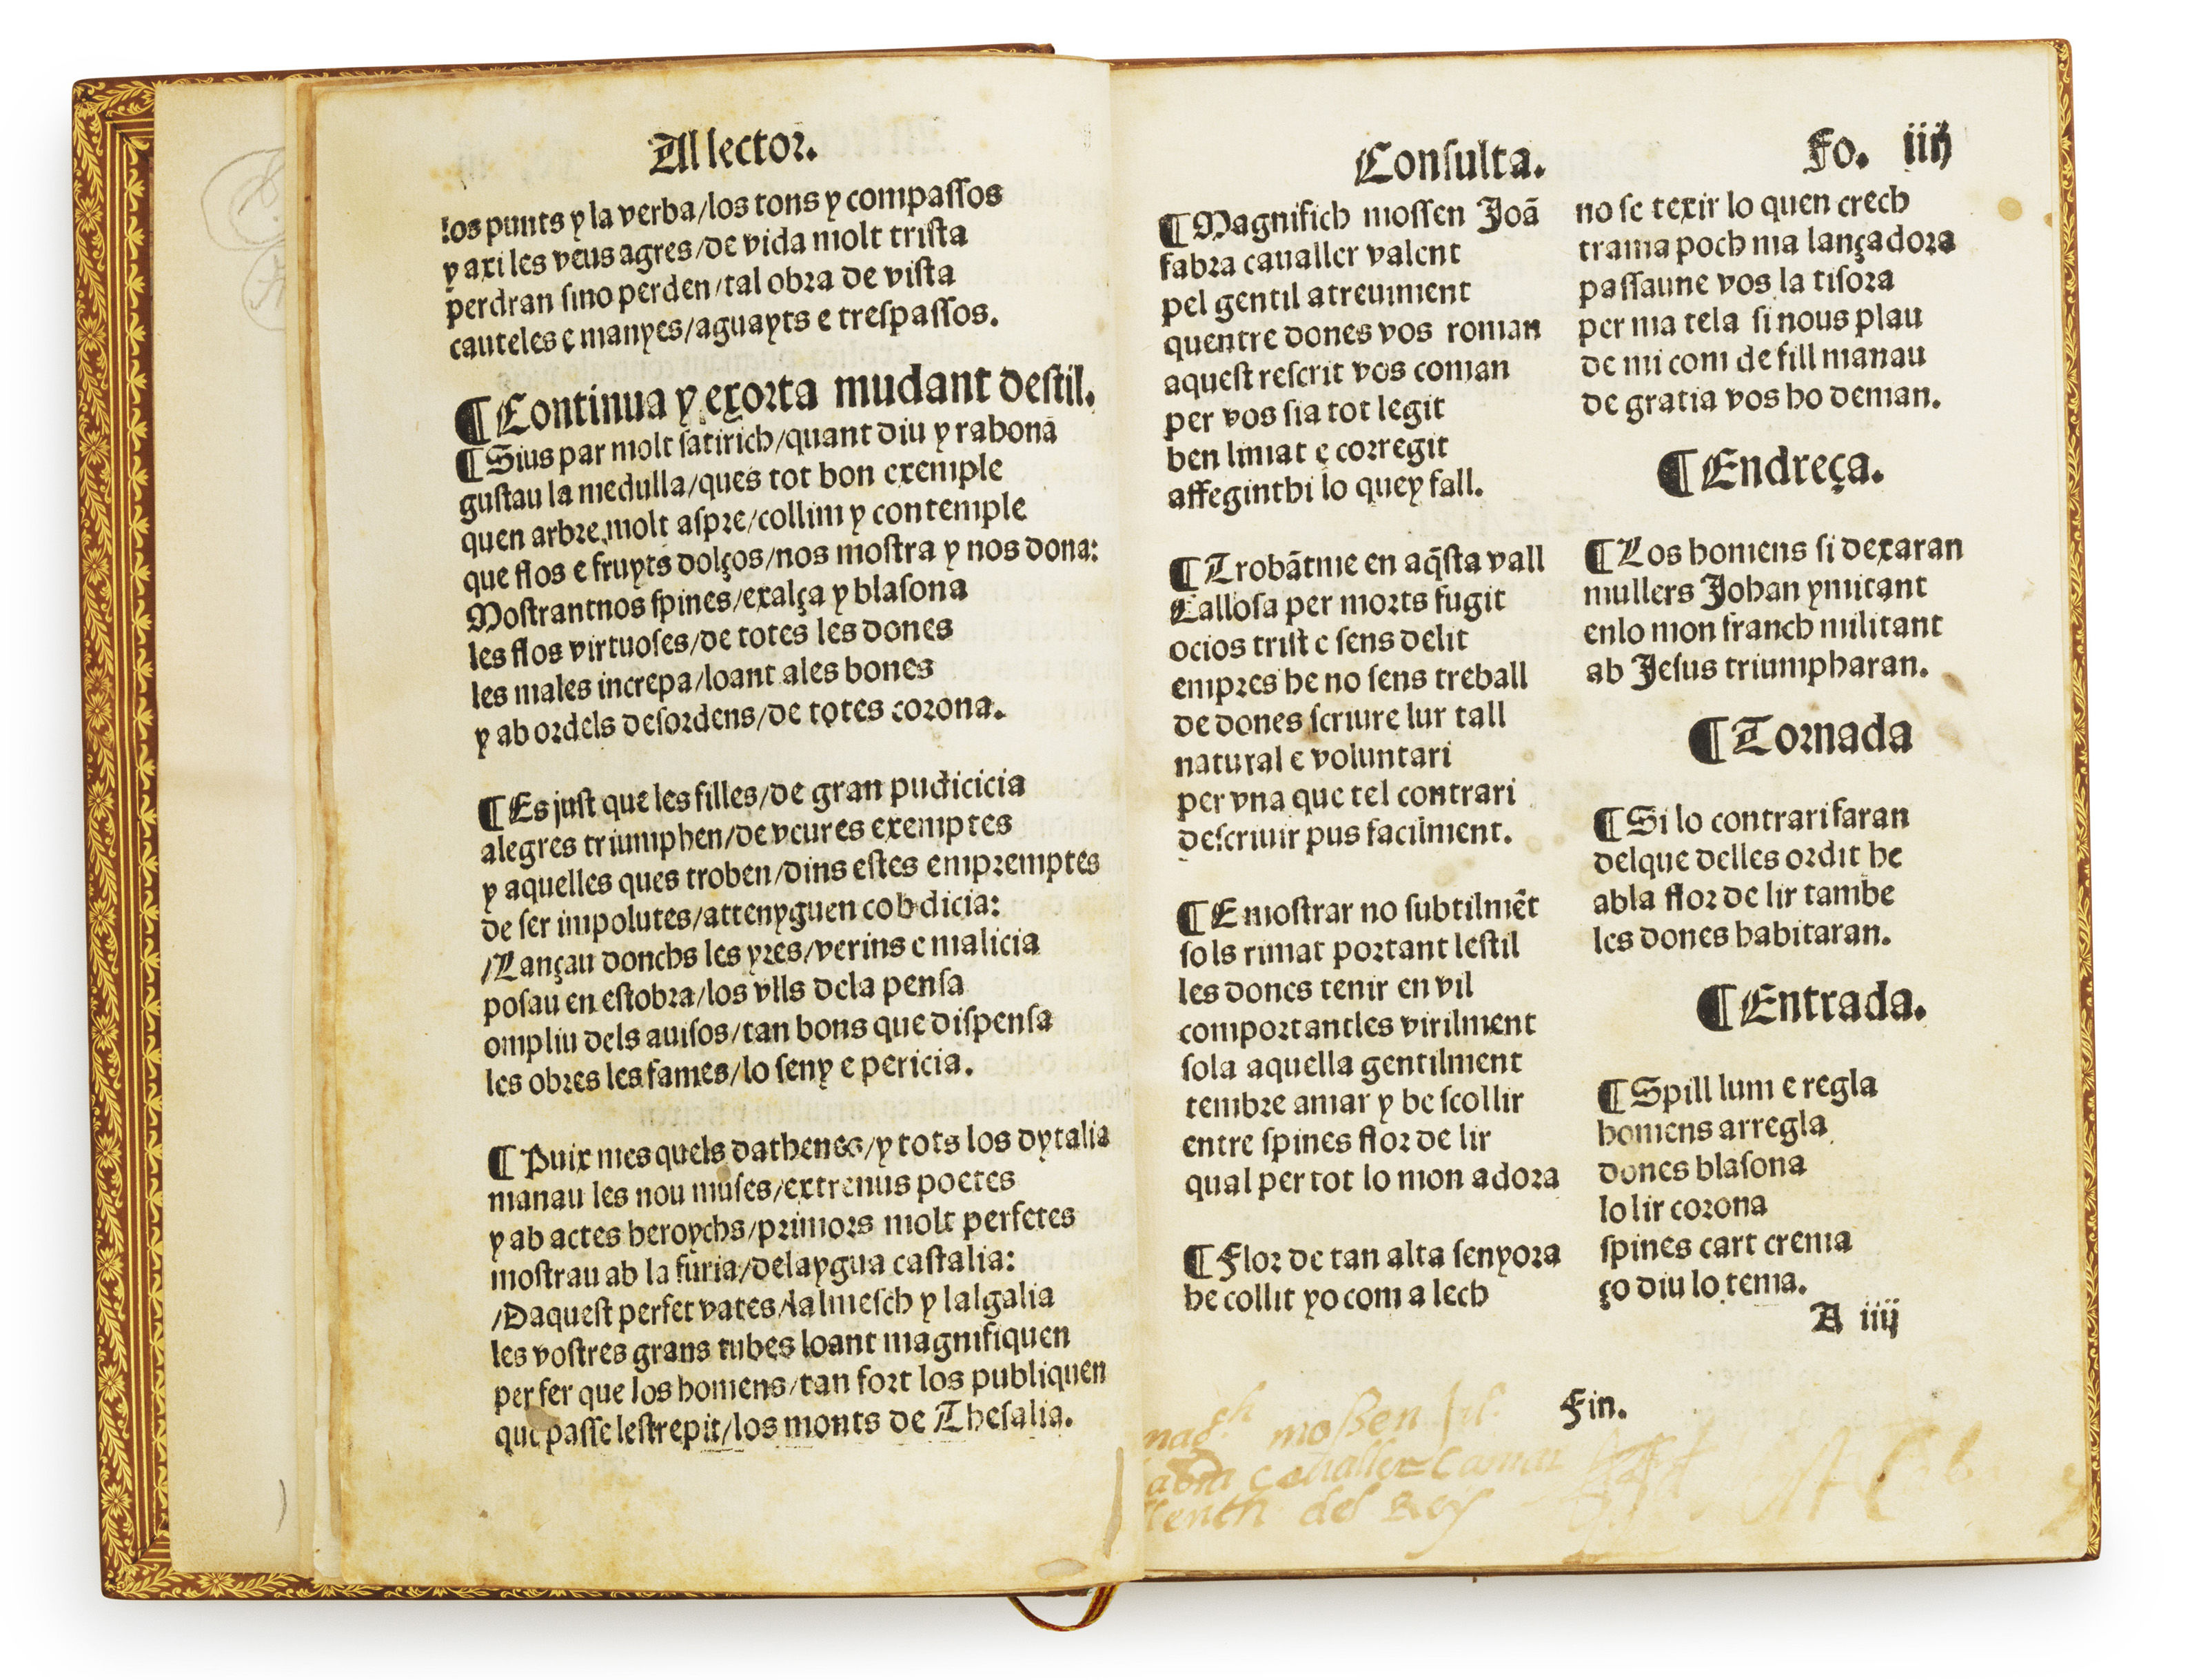 Al lector.
los punts y la verba/los tons y compaſſos
y axi les veus agres/de vida molt triſta
perdran ſino perden/tal obra de viſta
cauteles e manyes/aguayts e treſpaſſos.
¶Continua y exorta mudant deſtil.
¶Sius par molt ſatirich/quant diu y rahona
guſtau la medulla/ques tot bon exemple
quen arbre molt aſpre/collim y contemple
que flos e fruyts dolços/nos moſtra y nos dona:
Moſtrantnos ſpines/exalça y blaſona
les flos virtuoſes/de totes les dones
les males increpa/loant ales bones
y ab ordels deſordens/de totes corona.
¶Es juſt que les filles/de gran pudicicia
alegres triumphen/de veures exemptes
y aquelles ques troben/dins eſtes empremptes
de ſer impolutes/attenyguen cobdicia:
/Lançau donchs les yres/verins e malicia
poſau en eſtobra/los vlls dela penſa
ompliu dels auiſos/tan bons que diſpenſa
les obres les fames/lo ſeny e pericia.
¶Puix mes quels dathenes/y tots los dytalia
manau les nou muſes/extrenus poetes
y ab actes heroychs/primors molt perfetes
moſtrau ab la furia/delaygua caſtalia:
/Daqueſt perfet vates/lalmeſch y lalgalia
les voſtres grans tubes loant magnifiquen
per fer que los homens/tan fort los publiquen
que paſſe leſtrepit/los monts de Theſalia.
Conſulta.
Fo. iiij
¶Magnifich moſſen Joã
fabra caualler valent
pel gentil atreuiment
quentre dones vos roman
aqueſt reſcrit vos coman
per vos ſia tot legit
ben limat e corregit
affeginthi lo quey fall.
¶Trobãtme en aq̃ſta vall
Calloſa per morts fugit
ocios triſt e ſens delit
empres he no ſens treball
de dones ſcriure lur tall
natural e voluntari
per vna que tel contrari
deſcriuir pus facilment.
¶E moſtrar no ſubtilmẽt
ſols rimat portant leſtil
les dones tenir en vil
comportantles virilment
ſola aquella gentilment
tembre amar y be ſcollir
entre ſpines flor de lir
qual per tot lo mon adora
¶Flor de tan alta ſenyora
he collit yo com a lech
no ſe texir lo quen crech
trama poch ma lançadora
paſſaune vos la tiſora
per ma tela ſi nous plau
de mi com de fill manau
de gratia vos ho deman.
¶Endreça.
¶Los homens ſi dexaran
mullers Johan ymitant
enlo mon franch militant
ab Jeſus triumpharan.
¶Tornada
¶Si lo contrari faran
delque delles ordit he
abla flor de lir tambe
les dones habitaran.
¶Entrada.
¶Spill lum e regla
homens arregla
dones blaſona
lo lir corona
ſpines cart crema
ço diu lo tema.
A iiij
Fin.
moßen
del Rey